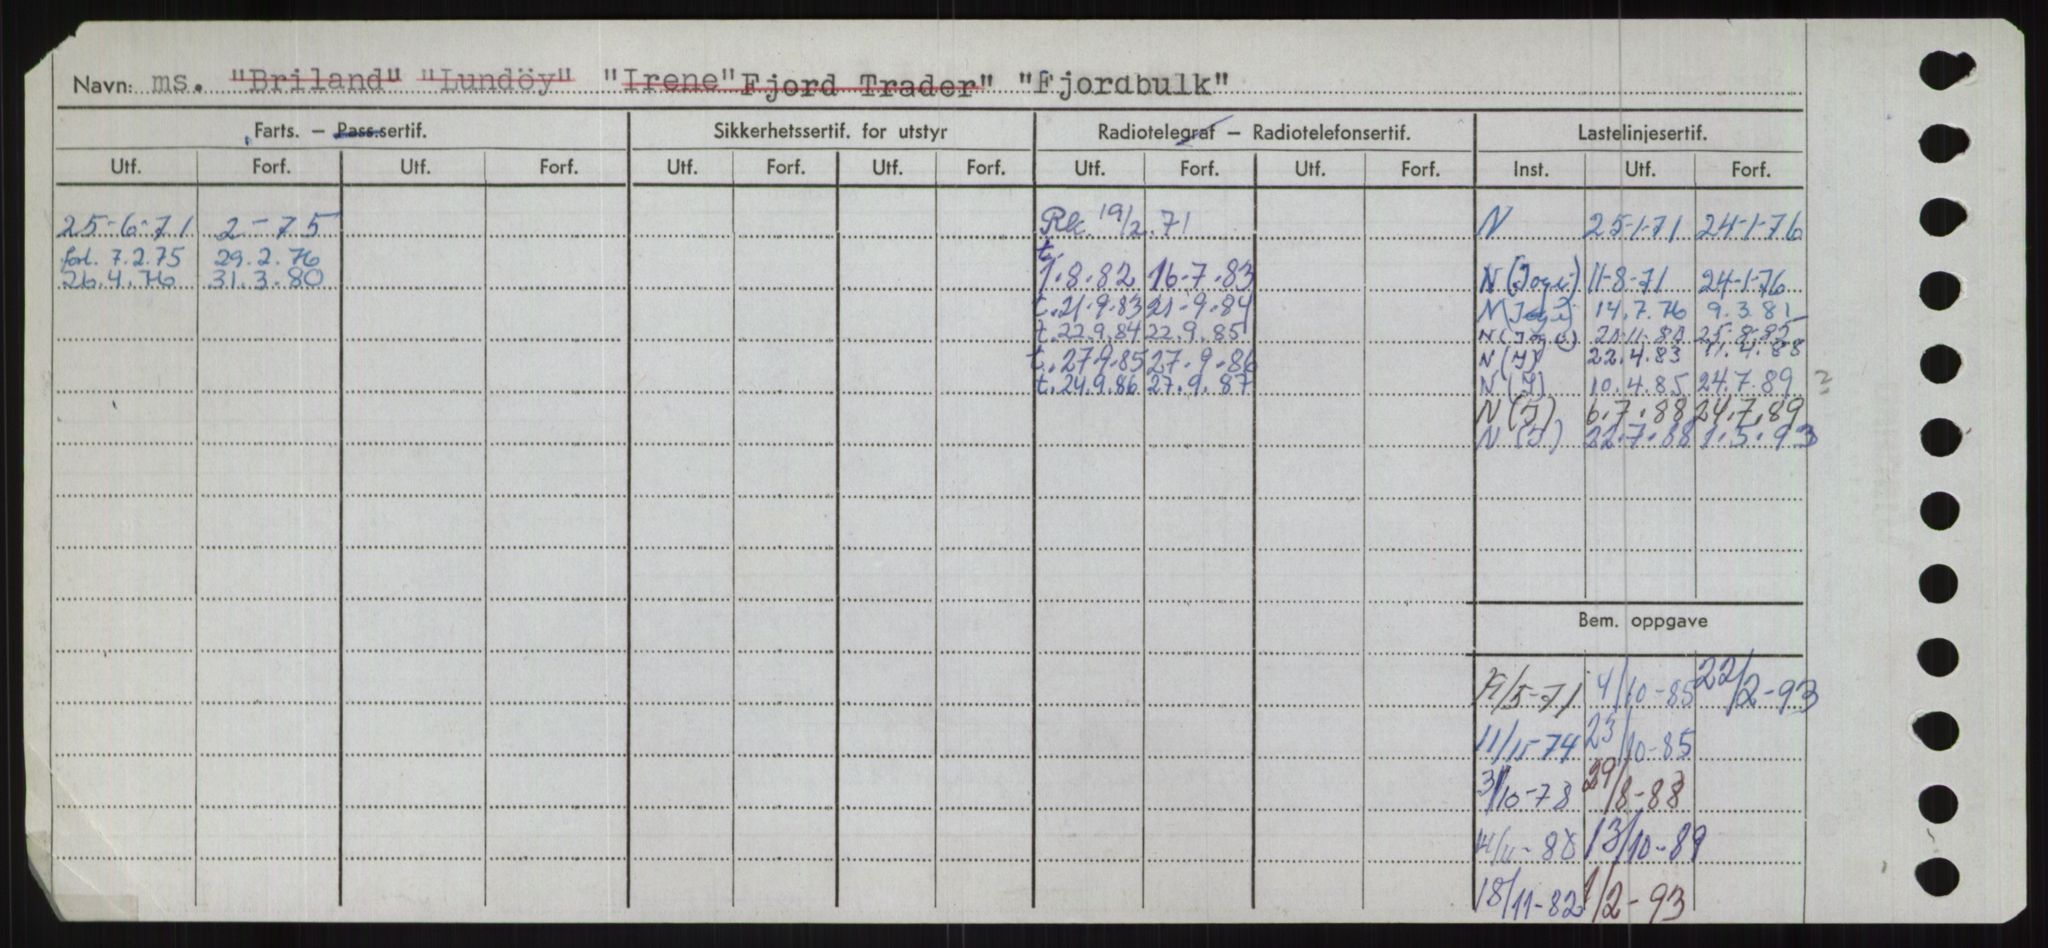 Navn: ms. "Briland" "Lundöy" "Irene" Fjord Trader" "Fjordbulk"
Farts. – Pass.sertif. Sikkerhetssertif. for utstyr Radiotelegraf – Radiotelefonsertif. Lastelinjesertif.
Utf. Forf. Utf. Forf. Utf. Forf. Utf. Forf. Utf. Forf. Utf. Forf. Inst. Utf. Forf.
25-6-71 2-75 19/2.71 N 25-1-71 24-1-76
forl. 7.2.75 29.2.76 t. 1.8.82 16.7.83 N 11-8-71 24-1-76
26.4.76 31.3.80 t. 21.9.83 21.9.84 N 14.7.76 9.3.81
t. 22.9.84 22.9.85 N
t. 27.9.85 27.9.86 N (J) 22.4.83 11.4.88
t. 24.9.86 27.9.87 N (J) 10.4.85 24.7.89 ?
N (J) 6.7.88 24.7.89
N (J) 22.7.88 1.5.93
Bem. oppgave
/5-71 4/10-85 22/2-93
11/11-74 23/10-85
3/10-78 29/8-88
13/10-89
18/11-82 1/2-93